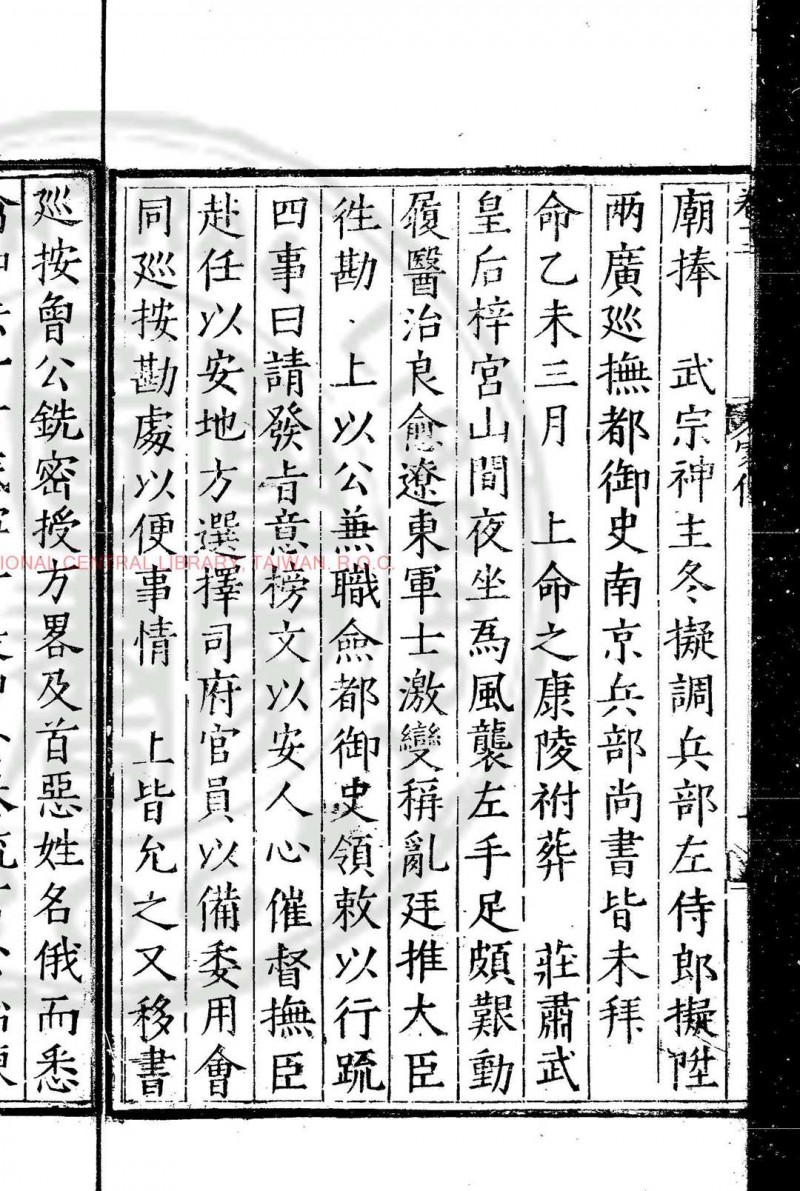 廟捧　武宗神主冬擬調兵部左侍郎擬陞
两廣廵撫都御史南京兵部尚書皆未拜
命乙未三月　上命之康陵祔葬　莊肅武
皇后梓宮山間夜坐爲風襲左手足頗艱動
履醫治良愈遼東軍士激變稱亂廷推大臣
徃勘　上以公兼職僉都御史領敕以行疏
四事曰請發旨意榜文以安人心催督撫臣
赴任以安地方選擇司府官員以備委用會
同廵按勘處以便事情　上皆允之又移書
廵按曾公銑密授方畧及首惡姓名俄而悉
NATIONAL CENTRAL LIBRARY, TAIWAN. R.O.C.